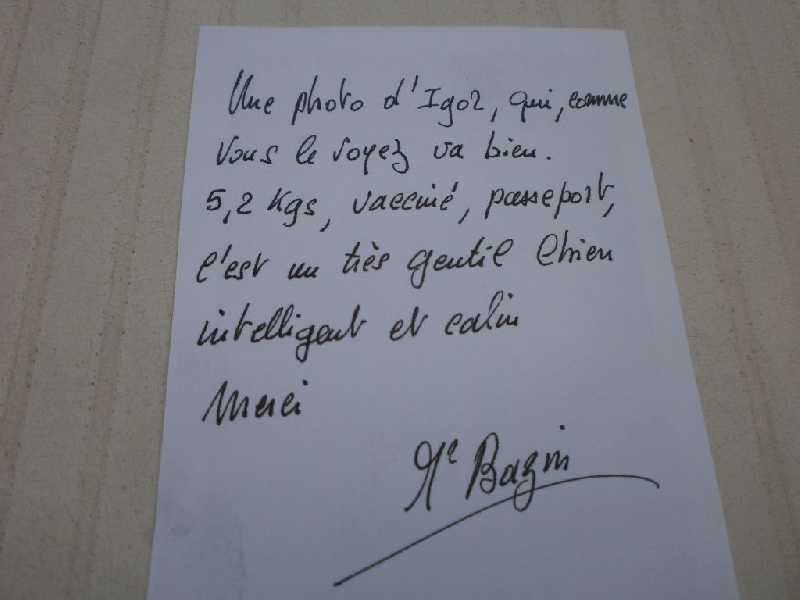 Une photo d'Igor, qui, comme
vous le voyez va bien.
5,2 Kgs, vacciné, passeport,
c'est un très gentil chien
intelligent et calin
Merci
Me Bazin